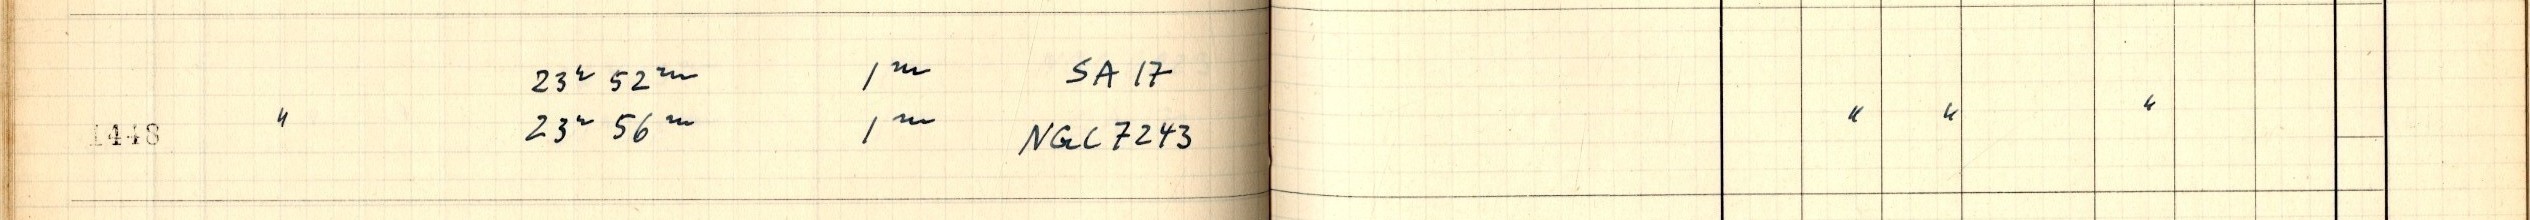 23ʰ 52ᵐ 1ᵐ SA 17
1448 " 23ʰ 56ᵐ 1ᵐ NGC 7243 " " "